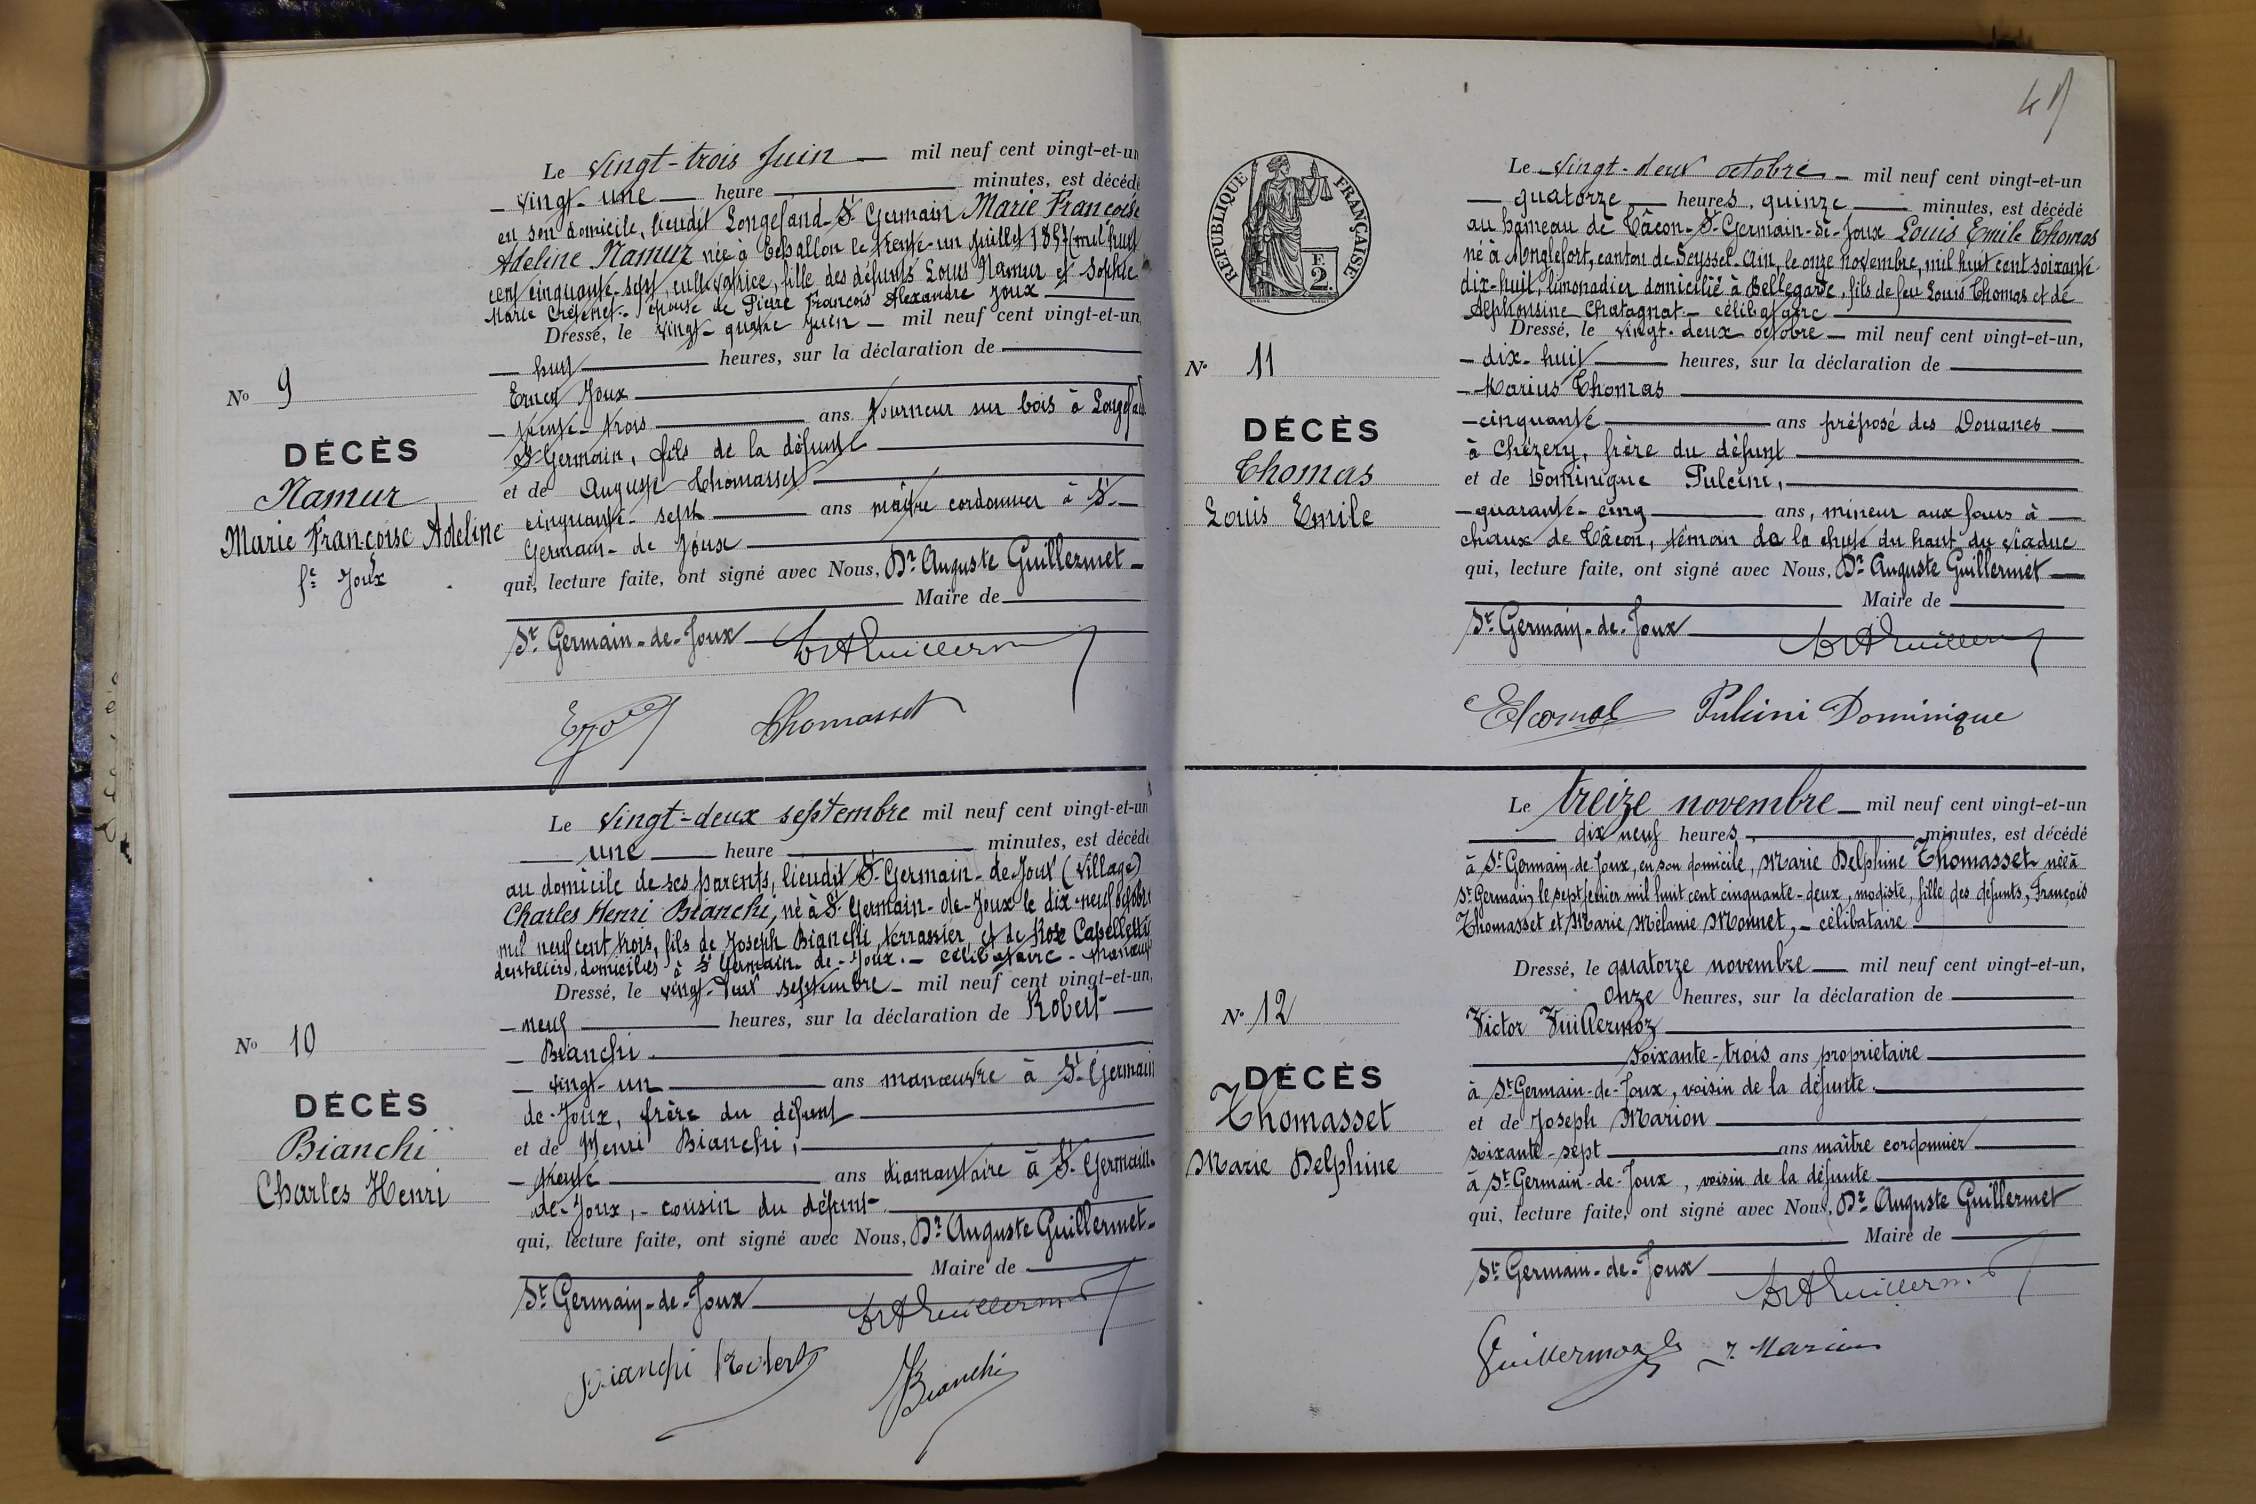 Le vingt-trois Juin — mil neuf cent vingt-et-un
— vingt-une — heure — minutes, est décédé
en son domicile, lieudit Longefand-St Germain Marie Françoise
Adeline Namur née à Echallon le trente-un juillet 1857 (mil huit
cent cinquante-sept, cultivatrice, fille des défunts Louis Namur et Sophie
Marie épouse de Pierre François Alexandre Joux
Dressé, le vingt-quatre Juin — mil neuf cent vingt-et-un,
— huit — heures, sur la déclaration de
Ernest Joux
— trente-trois — ans tourneur sur bois à
St Germain, fils de la défunte
et de Auguste Thomasset
cinquante-sept — ans maître cordonnier à St-
Germain-de-Joux
qui, lecture faite, ont signé avec Nous, Dr Auguste Guillermet —
Maire de
St Germain-de-Joux
Thomasset
No 9
DÉCÈS
Namur
Marie Françoise Adeline
fe Joux
Le vingt-deux septembre mil neuf cent vingt-et-un
— une — heure — minutes, est décédé
au domicile de ses parents, lieudit St-Germain-de-Joux (village)
Charles Henri Bianchi, né à St Germain-de-Joux le dix-neuf octobre
mil neuf cent trois, fils de Joseph Bianchi, terrassier, et de Rose Capelletti
dentelière, domiciliés à St Germain-de-Joux. — célibataire — manœuv
Dressé, le vingt-deux septembre — mil neuf cent vingt-et-un,
— neuf — heures, sur la déclaration de Robert —
— Bianchi
— vingt-un — ans manœuvre à St-Germain
de-Joux, frère du défunt
et de Henri Bianchi,
— trente — ans diamantaire à St-Germain-
de-Joux, - cousin du défunt-
qui, lecture faite, ont signé avec Nous, Dr Auguste Guillermet-
Maire de
St Germain-de-Joux
Bianchi Robert
Bianchi
No 10
DÉCÈS
Bianchi
Charles Henri
RÉPUBLIQUE FRANÇAISE
F.
2.
Le vingt-deux octobre — mil neuf cent vingt-et-un
— quatorze — heures, quinze — minutes, est décédé
au hameau de Tâcon-St-Germain-de-Joux Louis Emile Thomas
né à Anglefort, canton de Seyssel-Ain, le onze novembre, mil huit cent soixante-
dix-huit, limonadier domicilié à Bellegarde, fils de feu Louis Thomas et de
Alphonsine Chatagnat - célibataire
Dressé, le vingt-deux octobre — mil neuf cent vingt-et-un,
— dix-huit — heures, sur la déclaration de
— Marius Thomas
— cinquante — ans préposé des Douanes —
à Chézery, frère du défunt
et de Dominique Pulcini,
— quarante-cinq — ans, mineur aux fours à
chaux de Tâcon, témoin de la chute du haut du viaduc
qui, lecture faite, ont signé avec Nous, Dr Auguste Guillermet —
Maire de
St Germain-de-Joux
Pulcini Dominique
No 11
DÉCÈS
Thomas
Louis Emile
Le treize novembre — mil neuf cent vingt-et-un
dix neuf heures, — minutes, est décédé
à St-Germain-de-Joux, en son domicile, Marie Delphine Thomasset née à
St Germain le sept février mil huit cent cinquante-deux, modiste, fille des défunts, François
Thomasset et Marie Mélanie Monnet, - célibataire
Dressé, le quatorze novembre — mil neuf cent vingt-et-un,
onze heures, sur la déclaration de
Victor Vuillermoz
soixante-trois ans propriétaire
à St Germain-de-Joux, voisin de la défunte.
et de Joseph Marion
soixante-sept — ans maître cordonnier
à St Germain-de-Joux, voisin de la défunte
qui, lecture faite, ont signé avec Nous, Dr Auguste Guillermet
Maire de
St Germain-de-Joux
J. Marion
No 12
DÉCÈS
Thomasset
Marie Delphine